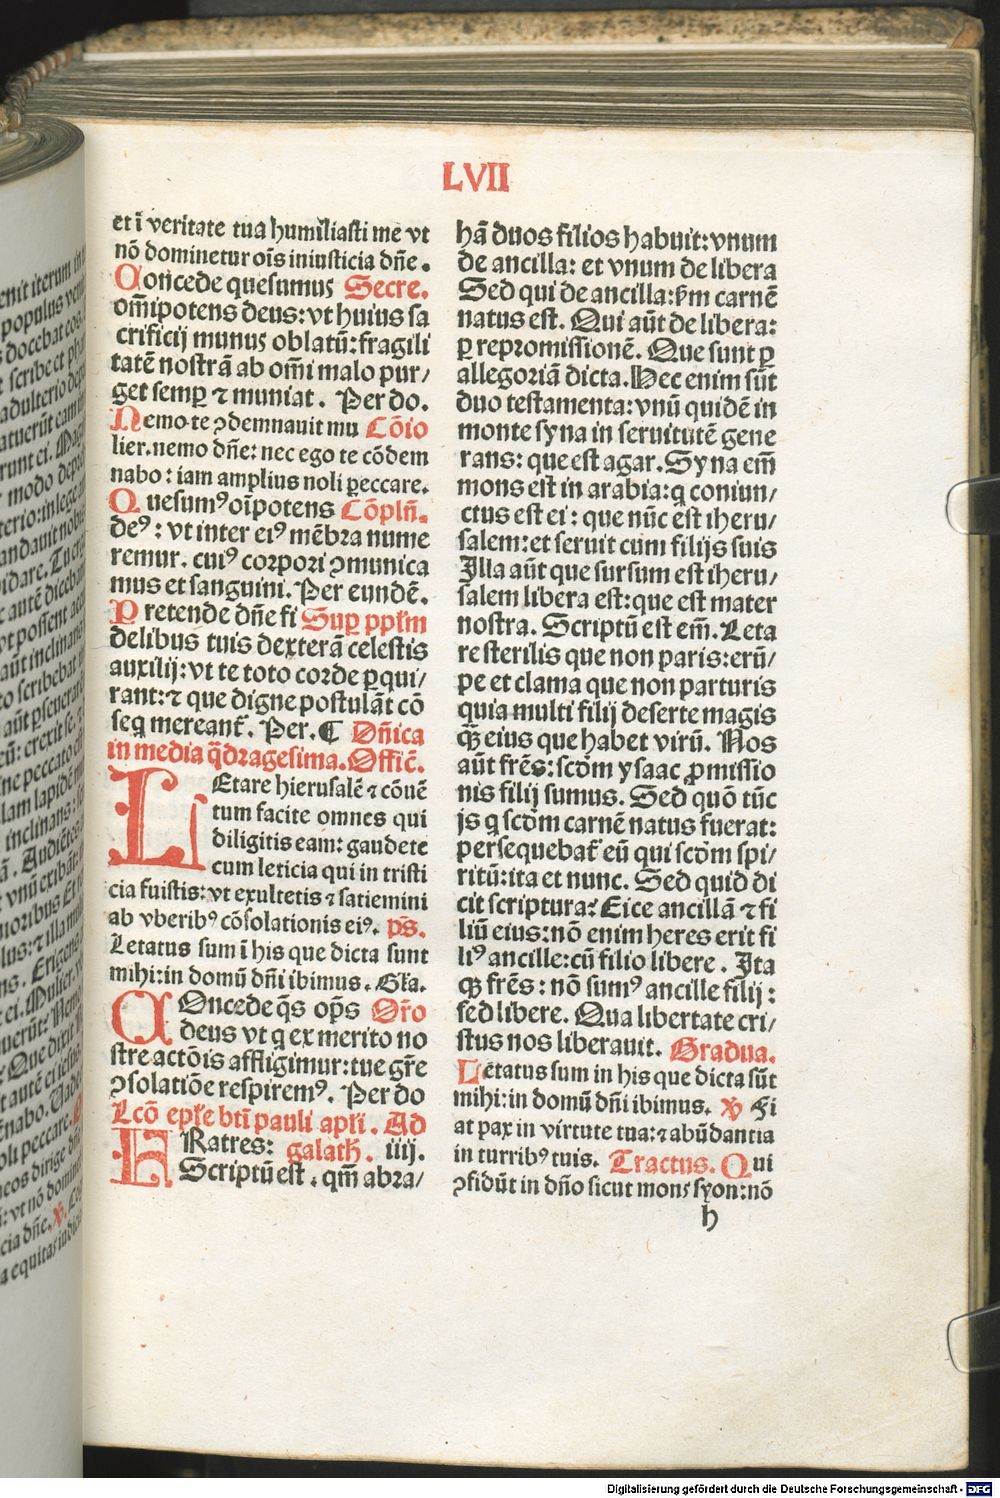 LVII
et ī veritate tua humiliasti me vt
nō dominetur oīs iniusticia dn̄e.
Concede quesumus Secre.
om̄ipotens deus: vt huius sa
crificij munus oblatū: fragili
tatē nostrā ab om̄i malo pur/
get semꝑ ⁊ muniat. Per do.
Nemo te ꝯdemnauit mu Cōio
lier. nemo dn̄e: nec ego te cōdem
nabo: iam amplius noli peccare.
Quesumꝰ oīpotens Cōpln̄.
deꝰ: vt inter eiꝰ mēbra nume
remur. cuiꝰ corpori ꝯmunica
mus et sanguini. Per eundē.
Pretende dn̄e fi Suꝑ ppl̄m
delibus tuis dexterā celestis
auxilij: vt te toto corde ꝑqui/
rant: ⁊ que digne postulāt cō
seq mereant̄. Per. ¶ Dn̄ica
in media q̄dragesima. Offic̄.
LEtare hierusalē ⁊ cōuē
tum facite omnes qui
diligitis eam: gaudete
cum leticia qui in tristi
cia fuistis: vt exultetis ⁊ satiemini
ab vberibꝰ cōsolationis eiꝰ. ps̄.
Letatus sum ī his que dicta sunt
mihi: in domū dn̄i ibimus. Gl̄a.
COncede q̄s op̄s Or̄o
deus vt q ex merito no
stre actōis affligimur: tue gr̄e
ꝯsolatiōe respiremꝰ. Per do
Lcō epl̄e bt̄i pauli apl̄i. Ad
FRatres: galath̄. iiij.
Scriptū est. qm̄ abra/
hā duos filios habuit: vnum
de ancilla: et vnum de libera
Sed qui de ancilla: ẜm carnē
natus est. Qui aūt de libera:
ꝑ repromissionē. Que sunt ꝑ
allegoriā dicta. Hec enim sūt
duo testamenta: vnū quidē in
monte syna in seruitutē gene
rans: que est agar. Syna em̄
mons est in arabia: q coniun/
ctus est ei: que nūc est iheru/
salem: et seruit cum filijs suis
Illa aūt que sursum est iheru/
salem libera est: que est mater
nostra. Scriptū est em̄. Leta
re sterilis que non paris: erū/
pe et clama que non parturis
quia multi filij deserte magis
qꝫ eius que habet virū. Nos
aūt fr̄es: scd̄m ysaac ꝓmissio
nis filij sumus. Sed quō tūc
is q scd̄m carnē natus fuerat:
persequebat̄ eū qui scd̄m spi/
ritū: ita et nunc. Sed quid di
cit scriptura? Eice ancillā ⁊ fi
liū eius: nō enim heres erit fi
liꝰ ancille: cū filio libere. Ita
qꝫ fr̄es: nō sumꝰ ancille filij:
sed libere. Qua libertate cri/
stus nos liberauit. Gradua.
Letatus sum in his que dicta sūt
mihi: in domū dn̄i ibimus. ℣ Fi
at pax in virtute tua: ⁊ abūdantia
in turribꝰ tuis. Tractus. Qui
ꝯfidūt in dn̄o sicut mons syon: nō
h
Digitalisierung gefördert durch die Deutsche Forschungsgemeinschaft - DFG